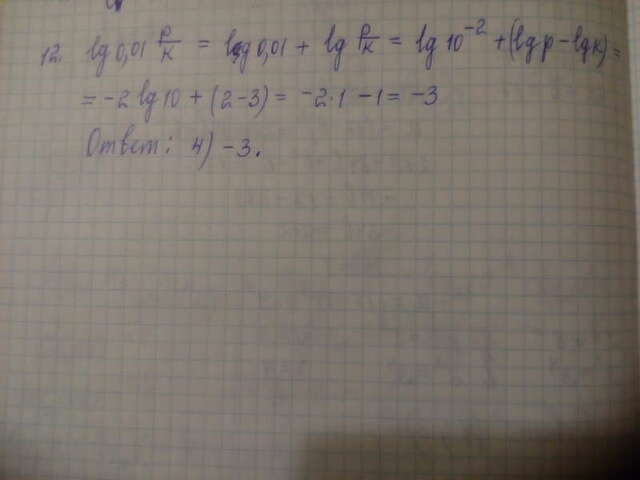 12. lg 0,01 p/k = lg 0,01 + lg p/k = lg 10⁻² + (lg p - lg k) =
= -2 lg 10 + (2-3) = -2·1 -1 = -3
Ответ: 4) -3.